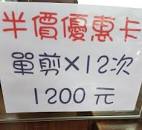 半價優惠卡
單剪×12次
1200元